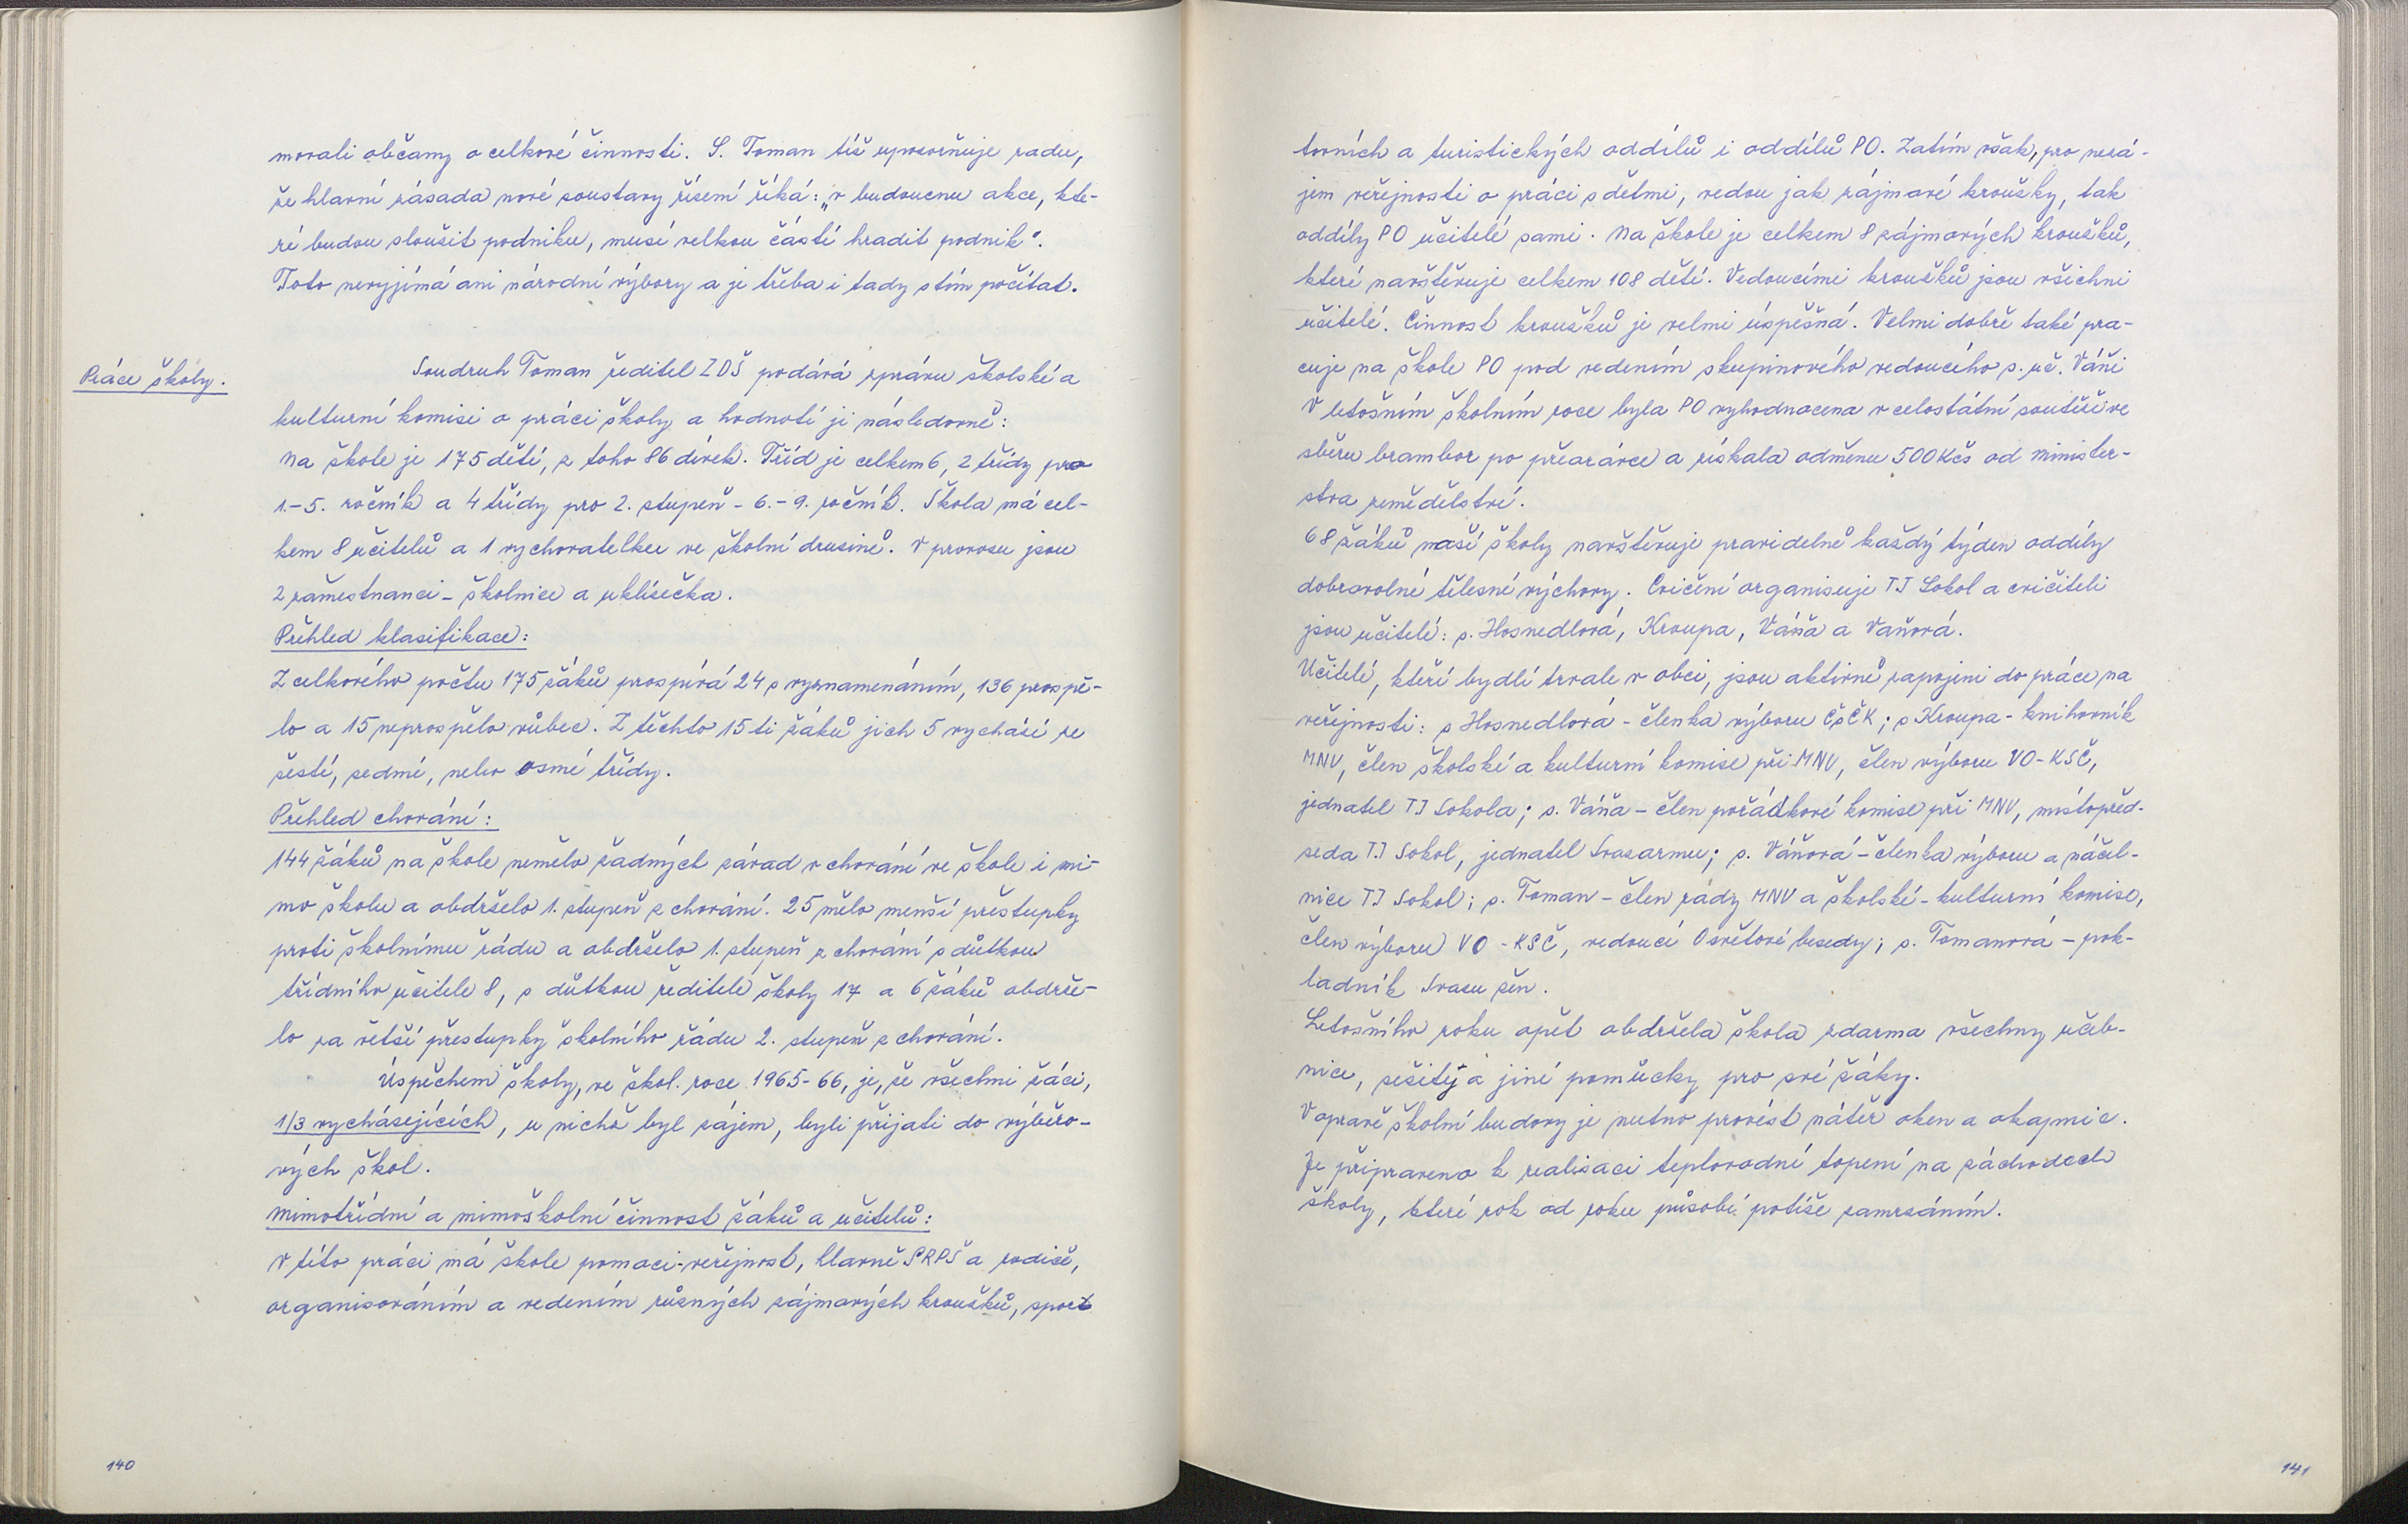 movali občany o celkové činnosti. S. Toman též upozorňuje radu,
že hlavní zásada nové soustavy řízení říká: „v budoucnu akce, kte-
ré budou sloužit podniku, musí velkou částí hradit podnik".
Toto nevyjímá ani národní výbory a je třeba i tady s tím počítat.
Práce školy.
Soudruh Toman ředitel ZDŠ podává zprávu školské a
kulturní komisi o práci školy a hodnotí ji následovně:
Na škole je 175 dětí, z toho 86 dívek. Tříd je celkem 6, 2 třídy pro
1.-5. ročník a 4 třídy pro 2. stupeň - 6.-9. ročník. Škola má cel-
kem 8 učitelů a 1 vychovatelku ve školní družině. V provozu jsou
2 zaměstnanci - školnice a uklízečka.
Přehled klasifikace:
Z celkového počtu 175 žáků prospívá 24 s vyznamenáním, 136 prospě-
lo a 15 neprospělo vůbec. Z těchto 15 ti žáků jich 5 vychází ze
šesté, sedmé, nebo osmé třídy.
Přehled chování:
144 žáků na škole nemělo žádných závad v chování ve škole i mi-
mo školu a obdrželo 1. stupeň z chování. 25 mělo menší přestupky
proti školnímu řádu a obdrželo 1. stupeň z chování s důtkou
třídního učitele 8, s důtkou ředitele školy 17 a 6 žáků obdrže-
lo za větší přestupky školního řádu 2. stupeň z chování.
Úspěchem školy, ve škol. roce 1965-66, je, že všichni žáci,
1/3 vycházejících, u nichž byl zájem, byli přijati do výběro-
vých škol.
Mimotřídní a mimoškolní činnost žáků a učitelů:
V této práci má škole pomoci veřejnost, hlavně SRPŠ a rodiče,
organisováním a vedením různých zájmových kroužků, sport
140
tovních a turistických oddílů i oddílů PO. Zatím však, pro nezá-
jem veřejnosti o práci s dětmi, vedou jak zájmové kroužky, tak
oddíly PO učitelé sami. Na škole je celkem 8 zájmových kroužků,
které navštěvuje celkem 108 dětí. Vedoucími kroužků jsou všichni
učitelé. Činnost kroužků je velmi úspěšná. Velmi dobře také pra-
cuje na škole PO pod vedením skupinového vedoucího s. uč. Váni
V letošním školním roce byla PO vyhodnocena v celostátní soutěži ve
sběru brambor po přeorávce a získala odměnu 500 Kčs od minister-
stva zemědělství.
68 žáků naší školy navštěvuje pravidelně každý týden oddíly
dobrovolné tělesné výchovy. Cvičení organisuje TJ Sokol a cvičiteli
jsou učitelé: s. Hosnedlová, Kroupa, Váňa a Vaňová.
Učitelé, kteří bydlí trvale v obci, jsou aktivně zapojeni do práce na
veřejnosti: s Hosnedlová - členka výboru ČSČK; s Kroupa - knihovník
MNV, člen školské a kulturní komise při MNV, člen výboru VO-KSČ,
jednatel TJ Sokola; s. Váňa - člen pořádkové komise při MNV, místopřed-
seda TJ Sokol, jednatel Svazarmu; s. Váňová - členka výboru a náčel-
nice TJ Sokol; s. Toman - člen rady MNV a školské - kulturní komise,
člen výboru VO - KSČ, vedoucí Osvětové besedy; s. Tomanová - pok-
ladník Svazu žen.
Letošního roku opět obdržela škola zdarma všechny učeb-
nice, sešity a jiné pomůcky pro své žáky.
V opravě školní budovy je nutno provést nátěr oken a okapnic.
Je připraveno k realisaci teplovodní topení na záchodech
školy, které rok od roku působí potíže zamrzáním.
141